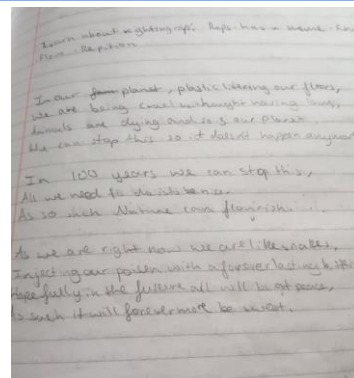 Learn about writing rap: Raps has a theme.
Flow. Repitition
In our planet, plastic littering our floors,
We are being cruel without having laws,
Animals are dying and so is our planet
We can stop this so it doesnt happen anymore
In 100 years we can stop this,
All we need to do is be nice.
As so such Nature can flourish.
As we are right now we are like snakes,
Injecting our poison with a forever lasting bite
Hopefully in the future all will be at peace,
As such it will forevermore be sweet.